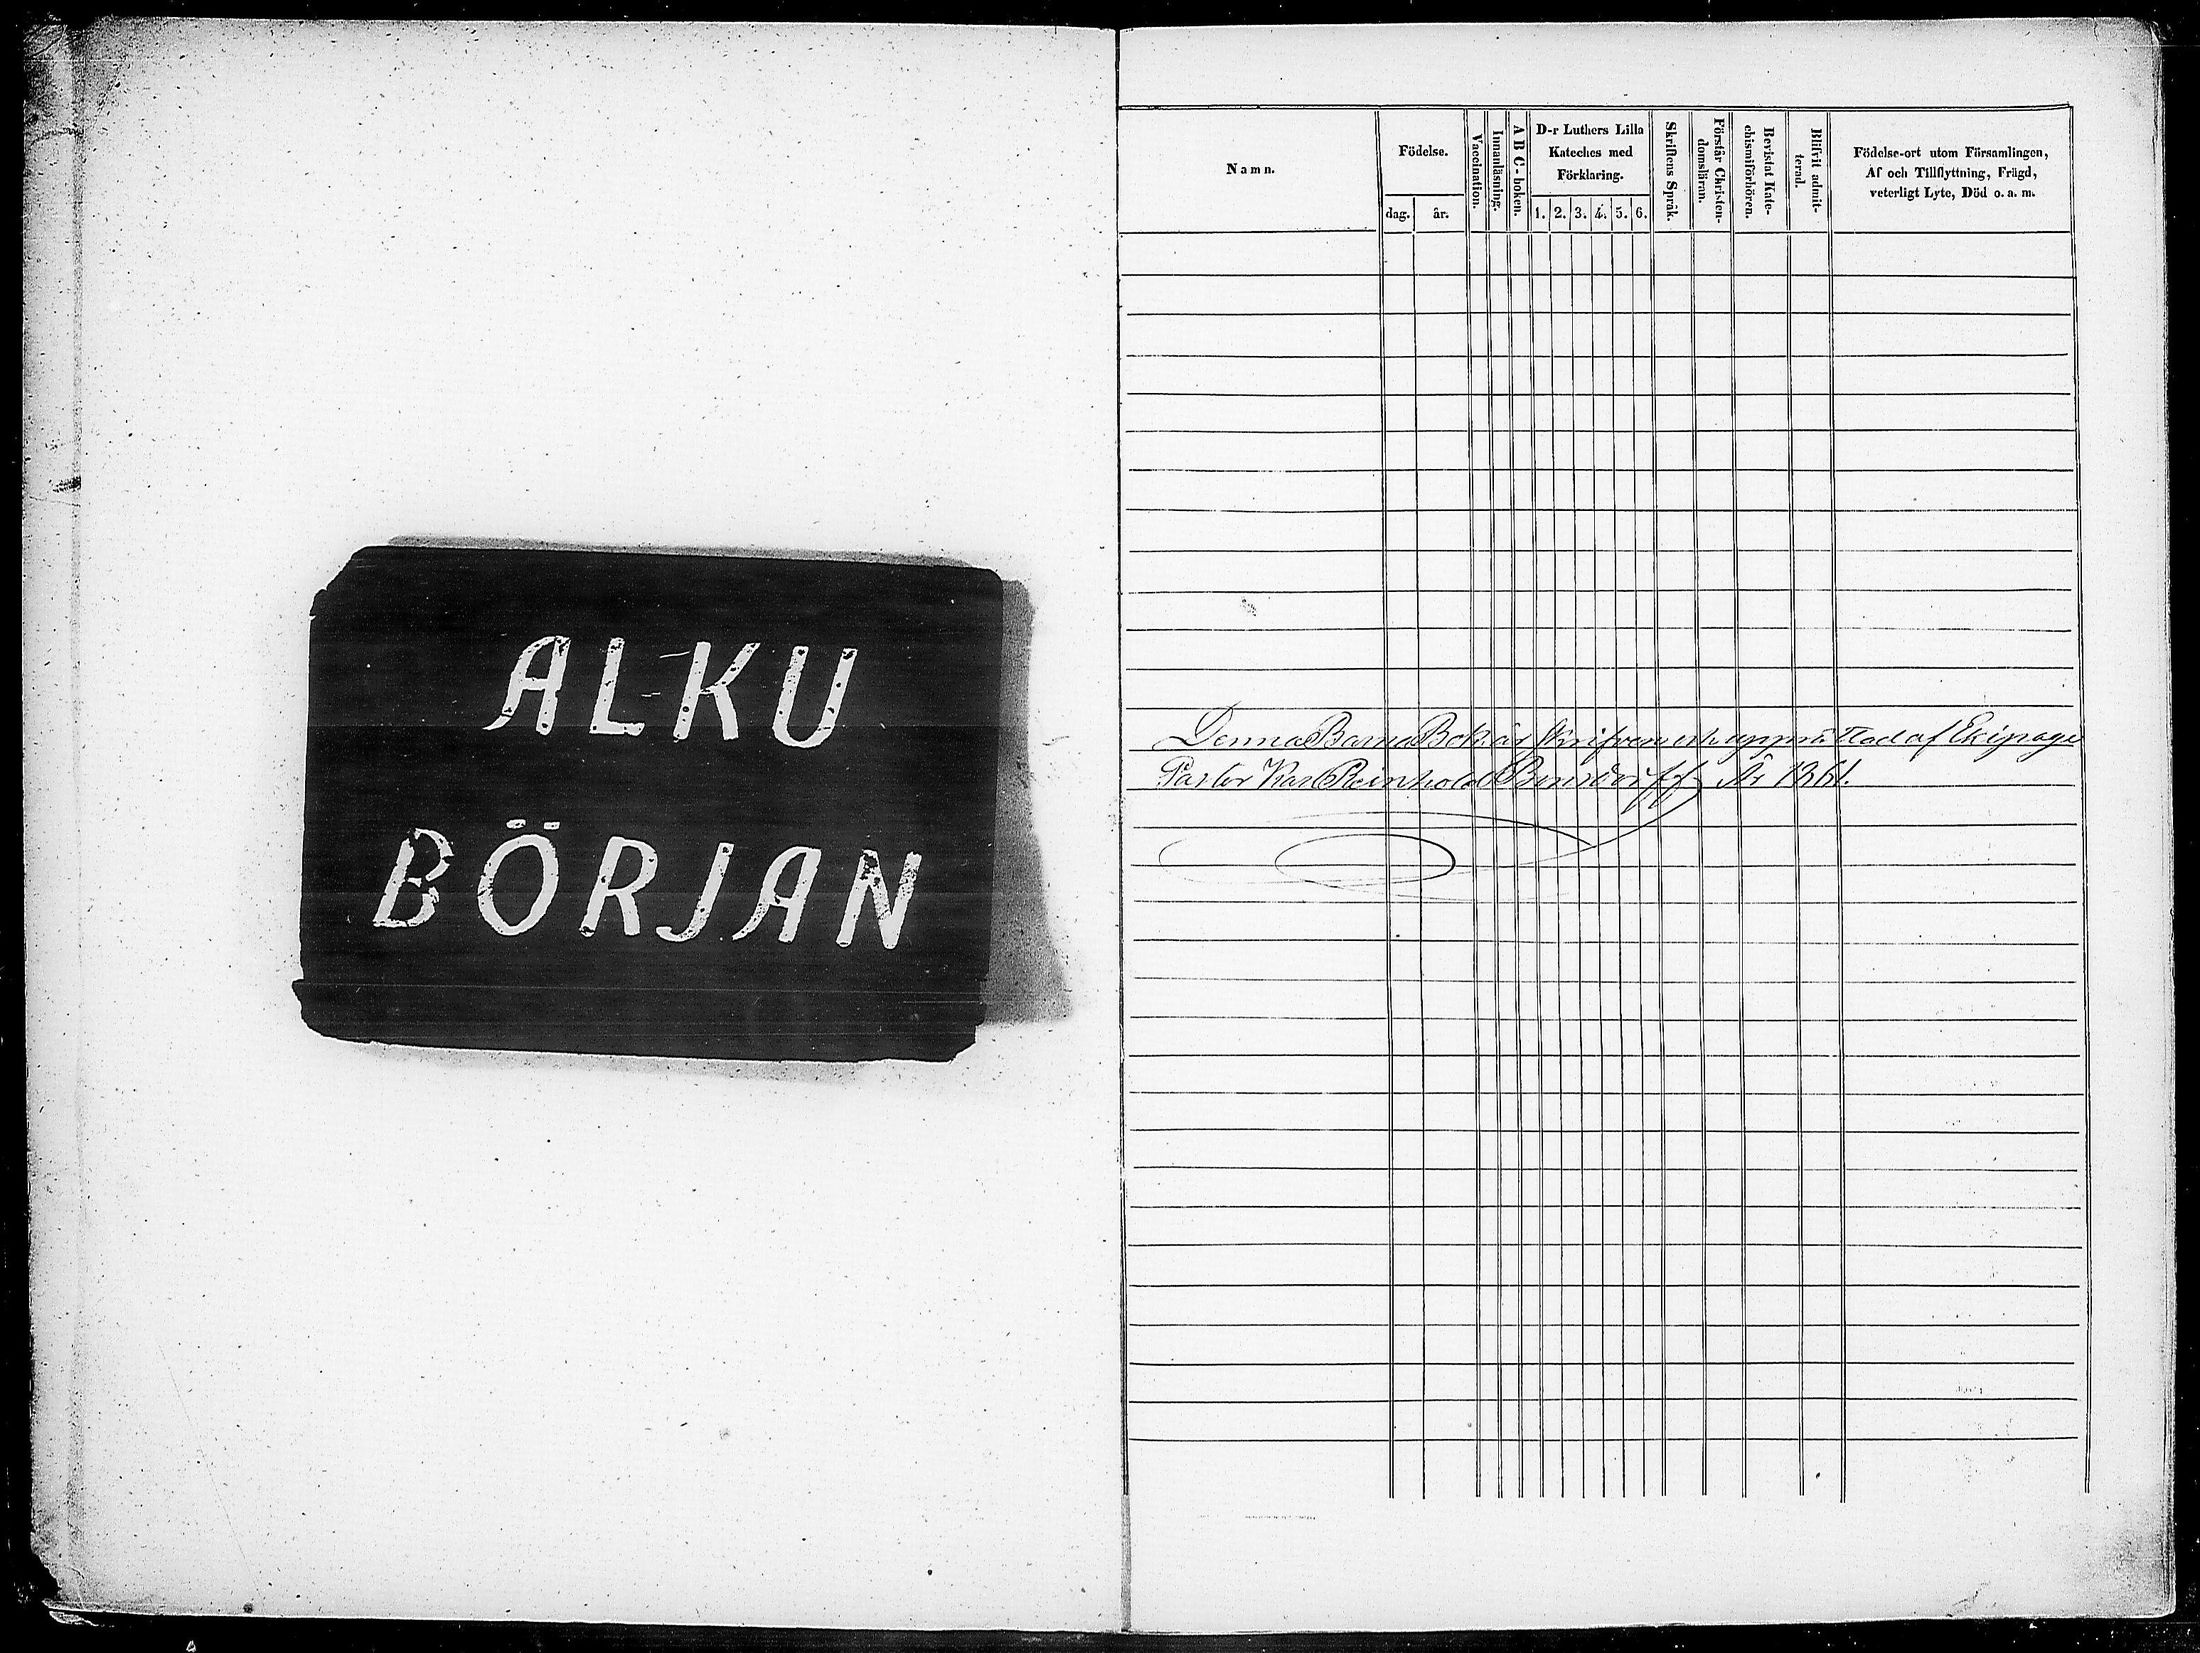 ALKU
BÖRJAN
Namn.
Födelse.
dag. år.
Vaccination.
Innanläsning.
A B C-boken.
D-r Luthers Lilla
Kateches med
Förklaring.
1. 2. 3. 4. 5. 6.
Skriftens Språk.
Förstår Christen-
domsläran.
Bevistat Kate-
chismiförhören.
Blifvit admit-
terad.
Födelse-ort utom Församlingen,
Af och Tillflyttning, Frägd,
veterligt Lyte, Död o. a. m.
Denna Barna Bok är skrifven och upprättad af Ekipage
Pastor Karl Reinhold Bonsdorff År 1861.